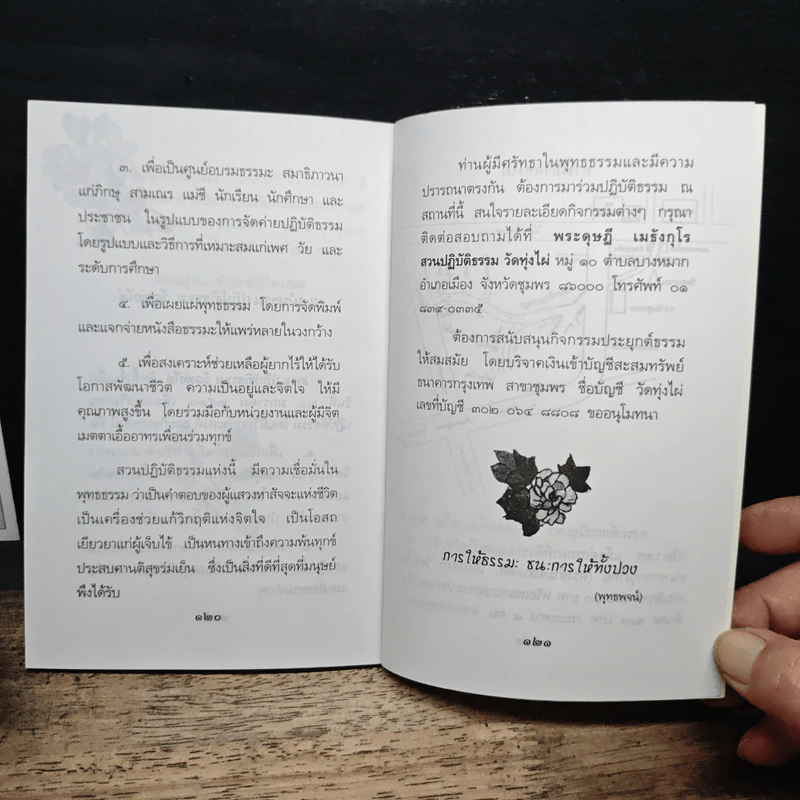 ๓. เพื่อเป็นศูนย์อบรมธรรมะ สมาธิภาวนา
แก่ภิกษุ สามเณร แม่ชี นักเรียน นักศึกษา และ
ประชาชน ในรูปแบบของการจัดค่ายปฏิบัติธรรม
โดยรูปแบบและวิธีการที่เหมาะสมแก่เพศ วัย และ
ระดับการศึกษา
๔. เพื่อเผยแผ่พุทธธรรม โดยการจัดพิมพ์
และแจกจ่ายหนังสือธรรมะให้แพร่หลายในวงกว้าง
๕. เพื่อสงเคราะห์ช่วยเหลือผู้ยากไร้ให้ได้รับ
โอกาสพัฒนาชีวิต ความเป็นอยู่และจิตใจ ให้มี
คุณภาพสูงขึ้น โดยร่วมมือกับหน่วยงานและผู้มีจิต
เมตตาเอื้ออาทรเพื่อนร่วมทุกข์
สวนปฏิบัติธรรมแห่งนี้ มีความเชื่อมั่นใน
พุทธธรรม ว่าเป็นคำตอบของผู้แสวงหาสัจจะแห่งชีวิต
เป็นเครื่องช่วยแก้วิกฤติแห่งจิตใจ เป็นโอสถ
เยียวยาแก่ผู้เจ็บไข้ เป็นหนทางเข้าถึงความพ้นทุกข์
ประสบศานติสุขร่มเย็น ซึ่งเป็นสิ่งที่ดีที่สุดที่มนุษย์
พึงได้รับ
๑๒๐
ท่านผู้มีศรัทธาในพุทธธรรมและมีความ
ปรารถนาตรงกัน ต้องการมาร่วมปฏิบัติธรรม ณ
สถานที่นี้ สนใจรายละเอียดกิจกรรมต่างๆ กรุณา
ติดต่อสอบถามได้ที่ พระดุษฎี เมธังกุโร
สวนปฏิบัติธรรม วัดทุ่งไผ่ หมู่ ๑๐ ตำบลบางหมาก
อำเภอเมือง จังหวัดชุมพร ๘๖๐๐๐ โทรศัพท์ ๐๑
๘๓๙-๐๓๓๕
ต้องการสนับสนุนกิจกรรมประยุกต์ธรรม
ให้สมสมัย โดยบริจาคเงินเข้าบัญชีสะสมทรัพย์
ธนาคารกรุงเทพ สาขาชุมพร ชื่อบัญชี วัดทุ่งไผ่
เลขที่บัญชี ๓๐๒ ๐๖๔ ๘๘๐๘ ขออนุโมทนา
การให้ธรรมะ ชนะการให้ทั้งปวง
(พุทธพจน์)
๑๒๑